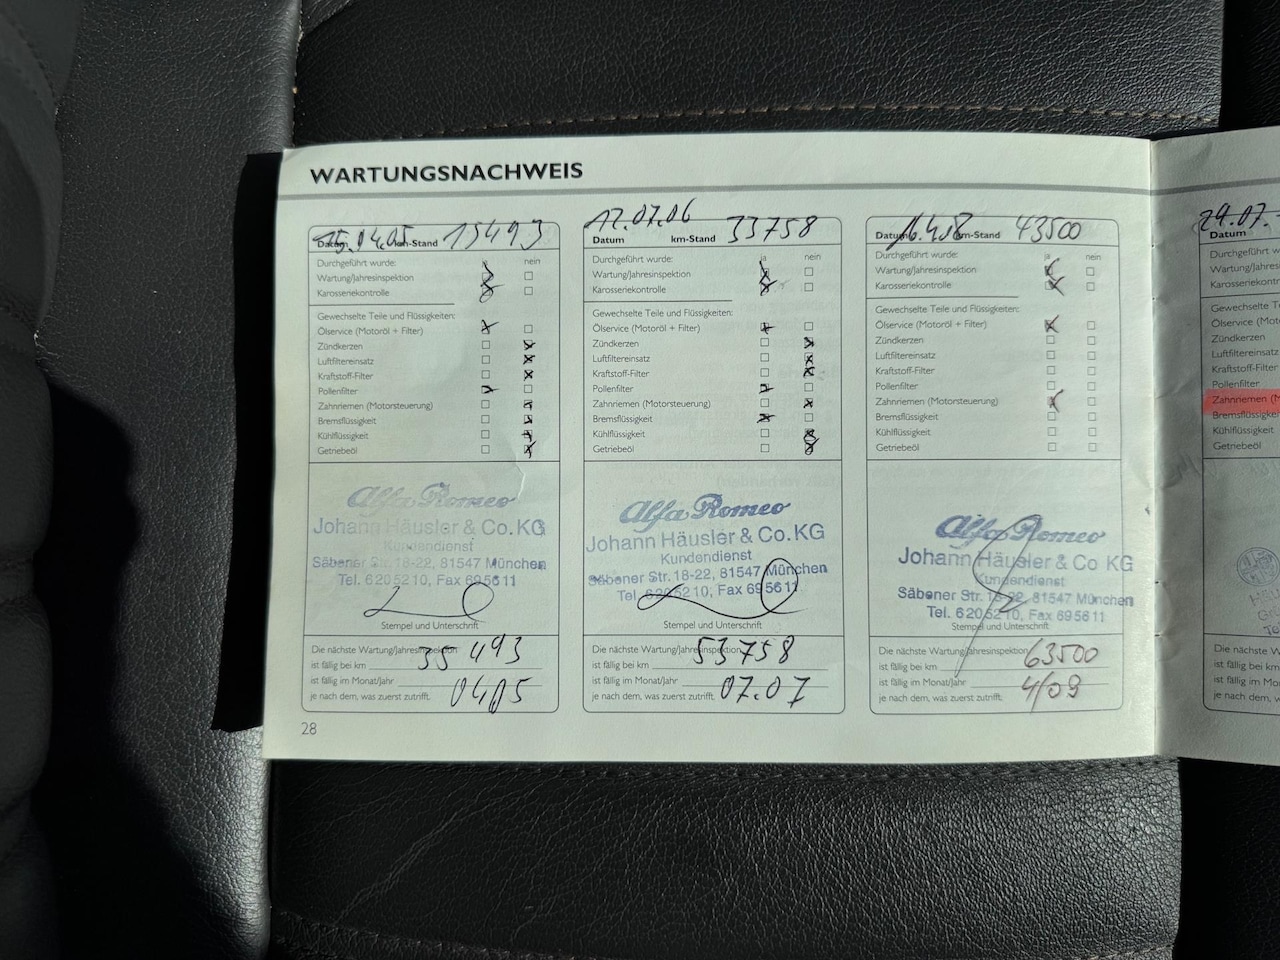 WARTUNGSNACHWEIS
15.04.05 15493
Datum km-Stand
Durchgeführt wurde: ja nein
Wartung/Jahresinspektion
Karosseriekontrolle
Gewechselte Teile und Flüssigkeiten:
Ölservice (Motoröl + Filter)
Zündkerzen
Luftfiltereinsatz
Kraftstoff-Filter
Pollenfilter
Zahnriemen (Motorsteuerung)
Bremsflüssigkeit
Kühlflüssigkeit
Getriebeöl
Alfa Romeo
Johann Häusler & Co. KG
Kundendienst
Säbener Str. 18-22, 81547 München
Tel. 6205210, Fax 695611
Stempel und Unterschrift
Die nächste Wartung/Jahresinspektion
ist fällig bei km 35493
ist fällig im Monat/Jahr
je nach dem, was zuerst zutrifft.
28
17.07.06 33758
Datum km-Stand
Durchgeführt wurde: ja nein
Wartung/Jahresinspektion
Karosseriekontrolle
Gewechselte Teile und Flüssigkeiten:
Ölservice (Motoröl + Filter)
Zündkerzen
Luftfiltereinsatz
Kraftstoff-Filter
Pollenfilter
Zahnriemen (Motorsteuerung)
Bremsflüssigkeit
Kühlflüssigkeit
Getriebeöl
Alfa Romeo
Johann Häusler & Co. KG
Kundendienst
Säbener Str. 18-22, 81547 München
Tel. 6205210, Fax 695611
Stempel und Unterschrift
Die nächste Wartung/Jahresinspektion
ist fällig bei km 53758
ist fällig im Monat/Jahr 07.07
je nach dem, was zuerst zutrifft.
Datum km-Stand 43500
Durchgeführt wurde: ja nein
Wartung/Jahresinspektion
Karosseriekontrolle
Gewechselte Teile und Flüssigkeiten:
Ölservice (Motoröl + Filter)
Zündkerzen
Luftfiltereinsatz
Kraftstoff-Filter
Pollenfilter
Zahnriemen (Motorsteuerung)
Bremsflüssigkeit
Kühlflüssigkeit
Getriebeöl
Alfa Romeo
Johann Häusler & Co KG
Kundendienst
Säbener Str. 18-22, 81547 München
Tel. 6205210, Fax 695611
Stempel und Unterschrift
Die nächste Wartung/Jahresinspektion
ist fällig bei km 63500
ist fällig im Monat/Jahr 4/09
je nach dem, was zuerst zutrifft.
29.07.
Datum
Durchgeführt
Wartung/Jahresin
Karosseriekont
Gewechselte Te
Ölservice (Moto
Zündkerzen
Luftfiltereinsatz
Kraftstoff-Filter
Pollenfilter
Zahnriemen (M
Bremsflüssigkeit
Kühlflüssigkeit
Getriebeöl
Die nächste W
ist fällig bei km
ist fällig im Mon
je nach dem, w